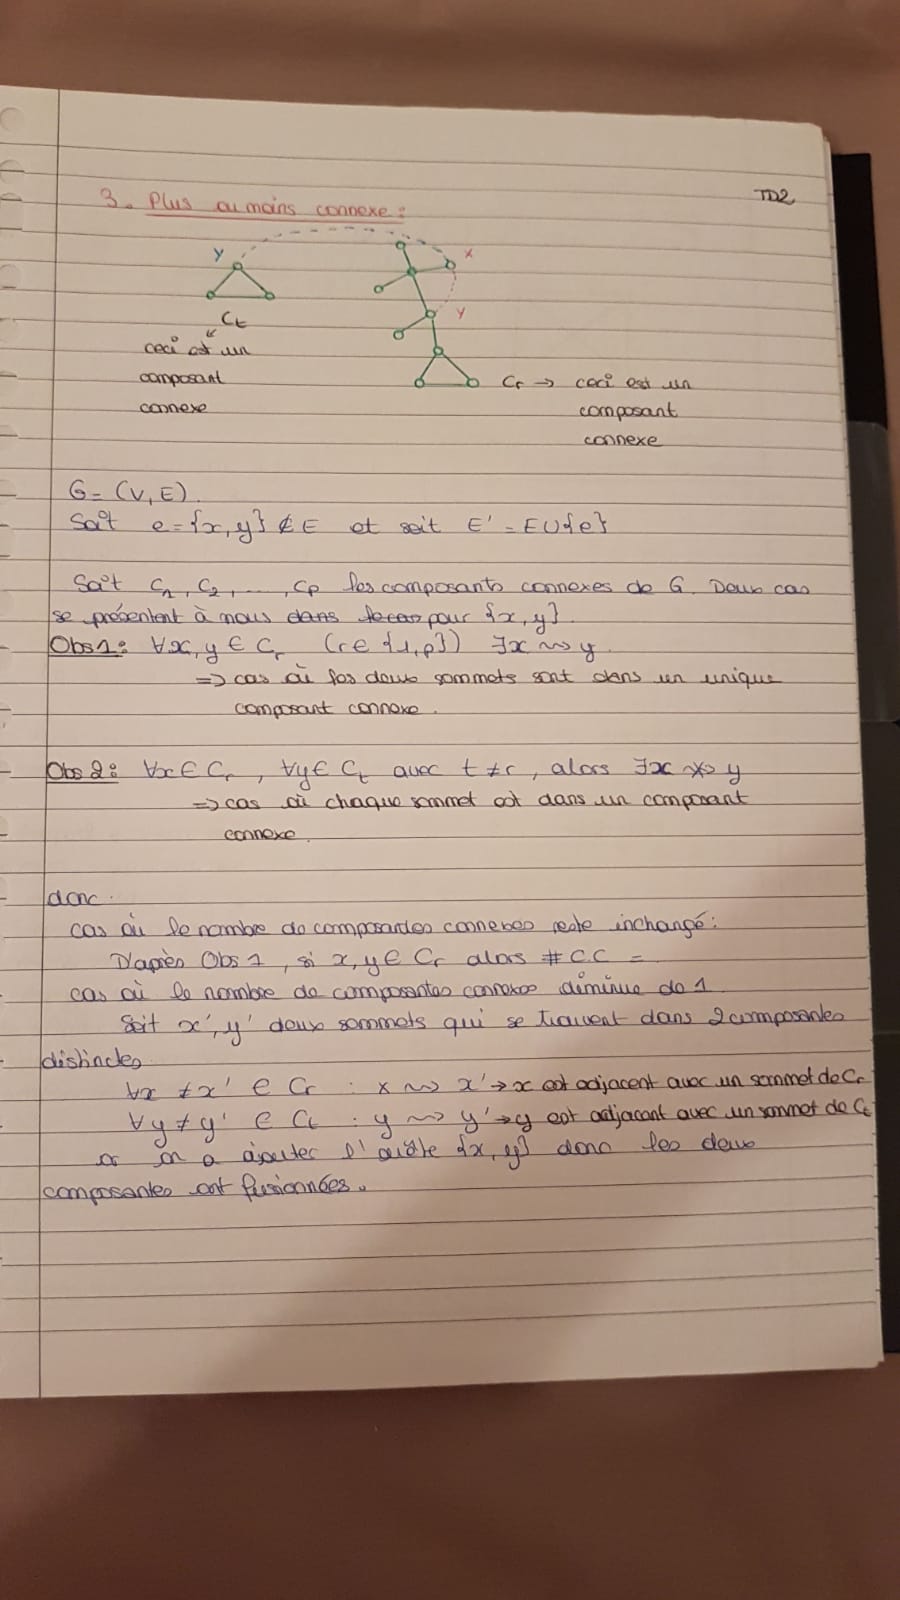 TD2
3. Plus ou moins connexe :
y
x
y
Ct
ceci est un
composant
connexe
Cr → ceci est un
composant
connexe
G = (V, E).
Soit e = {x, y} ∉ E et soit E' = E ∪ {e}
Soit C1, C2, ..., Cp les composants connexes de G. Deux cas
se présentent à nous dans pour {x, y}.
Obs 1 : ∀x, y ∈ Cr (r ∈ {1, p}) ∃x ⇝ y
=> cas où les deux sommets sont dans un unique
composant connexe.
Obs 2 : ∀x ∈ Cr, ∀y ∈ Ct avec t ≠ r, alors ∃x ⇝̸ y
=> cas où chaque sommet est dans un composant
connexe.
donc.
cas où le nombre de composantes connexes reste inchangé :
D'après Obs 1, si x, y ∈ Cr alors # CC =
cas où le nombre de composantes connexes diminue de 1
Soit x', y' deux sommets qui se trouvent dans 2 composantes
distinctes
∀x ≠ x' ∈ Cr : x ⇝ x' → x est adjacent avec un sommet de Cr
∀y ≠ y' ∈ Ct : y ⇝ y' → y est adjacant avec un sommet de Ct
or on a ajouter l'arête {x, y} donc les deux
composantes ont fusionnées.